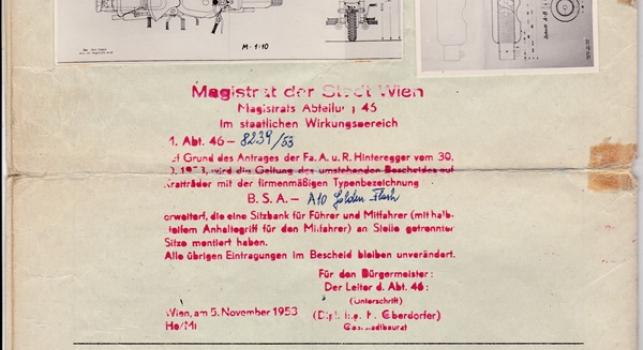 M-1:10
Magistrat der Stadt Wien
Magistrats Abteilung 46
Im staatlichen Wirkungsbereich
1. Abt. 46 – 8239/53
uf Grund des Antrages der Fa. A. u. R. Hinteregger vom 30.
1953, wird die Geltung des umstehenden Bescheides auf
Krafträder mit der firmenmäßigen Typenbezeichnung
B. S. A. – A10 Golden Flash
erweitert, die eine Sitzbank für Führer und Mitfahrer (mit halb-
teifem Anhaltegriff für den Mitfahrer) an Stelle getrennter
Sitze montiert haben.
Alle übrigen Eintragungen im Bescheid bleiben unverändert.
Für den Bürgermeister:
Der Leiter d. Abt. 46:
(Unterschrift)
Wien, am 5. November 1953 (Dipl. Ing. F. Oberdorfer)
He/Mi